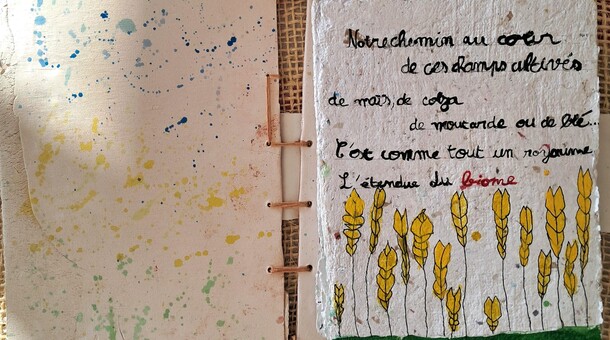 Notre chemin au cœur
de ces champs cultivés
de maïs, de colza
de moutarde ou de blé...
C'est comme tout un royaume
L'étendue du biome